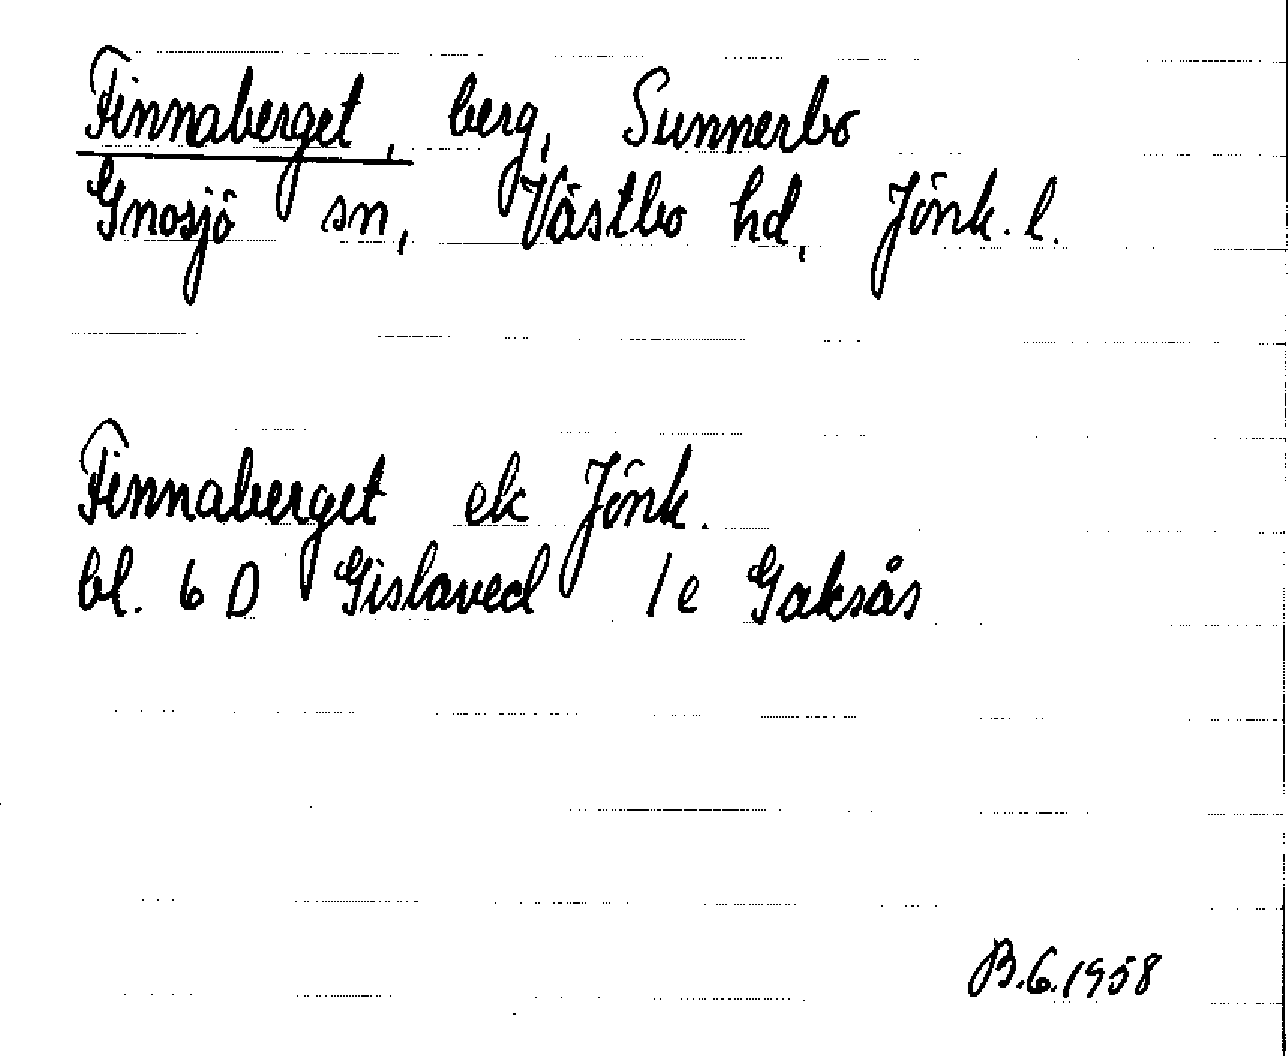 Finnaberget, berg, Sunnerbo
Gnosjö sn, Västbo hd, Jönk. l.
Finnaberget ek Jönk.
bl. 6 D Gislaved 1e Gaksås
B.G.1958